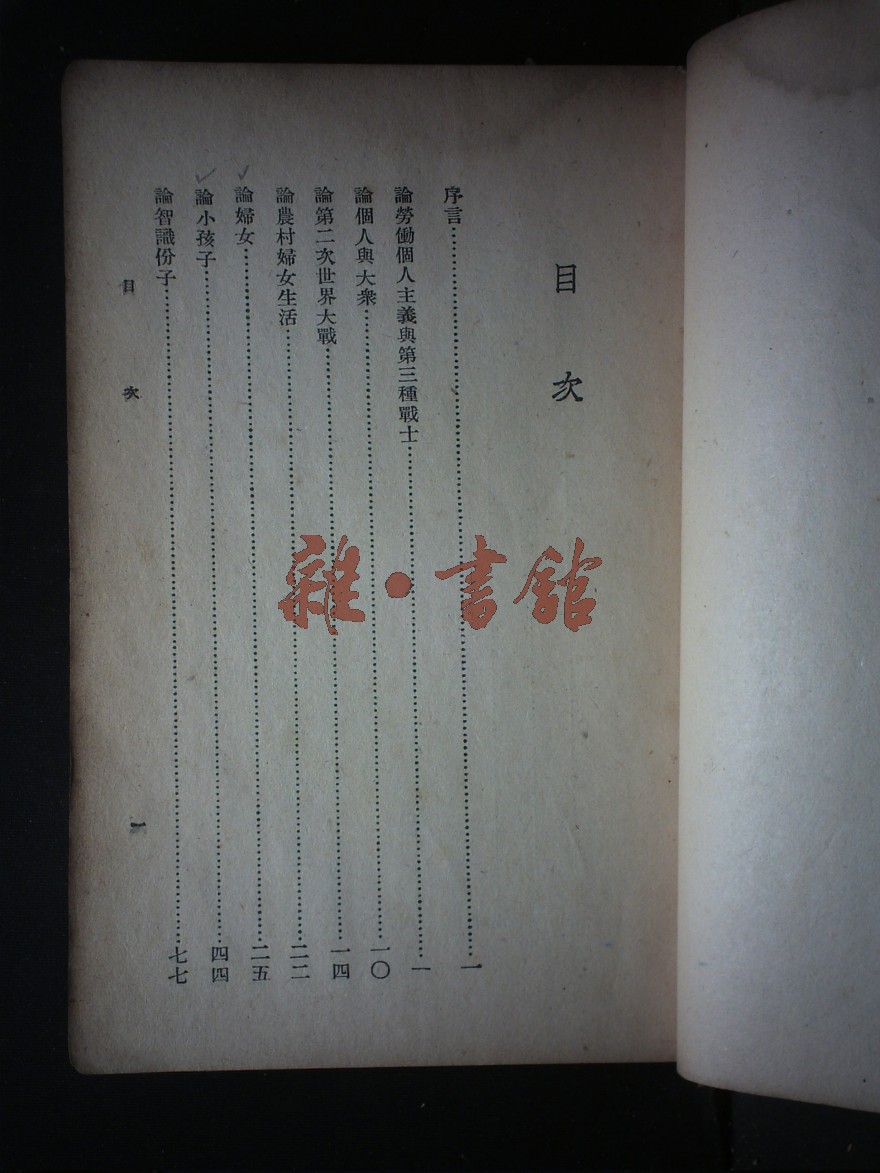 目次
序言……一
論勞働個人主義與第三種戰士……一
論個人與大衆……一〇
論第二次世界大戰……一四
論農村婦女生活……二二
論婦女……二五
論小孩子……四四
論智識份子……七七
目次
一
雜·書館